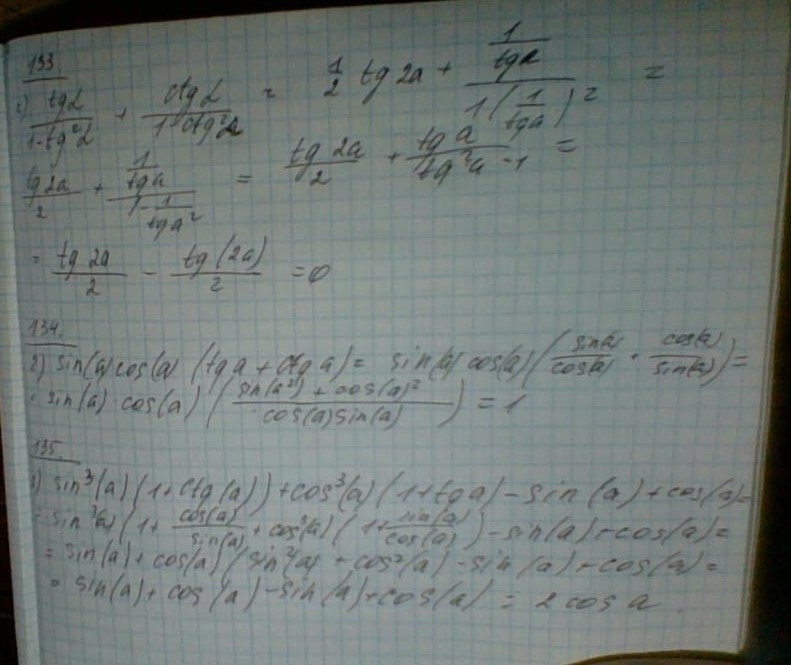 133.
2) tgα/(1-tg²α) + ctgα/(1-ctg²α) = 1/2 tg2a + (1/tga)/(1(1/tga)²) =
tg2a/2 + (1/tga)/(1-1/tga²) = tg2a/2 + tga/(tg²a-1) =
= tg2a/2 - tg(2a)/2 = 0
134.
2) sin(a)cos(a) (tga + ctga) = sin(a)cos(a)(sin(a)/cos(a) + cos(a)/sin(a)) =
= sin(a)·cos(a) ((sin(a²) + cos(a)²)/(cos(a)sin(a))) = 1
135.
sin³(a)(1+ctg(a))+cos³(a)(1+tga)-sin(a)+cos(a)=
= sin³(a)(1+cos(a)/sin(a)+cos³(a)(1+sin(a)/cos(a))-sin(a)+cos(a)=
= sin(a)+cos(a)(sin²(a)+cos²(a)-sin(a)+cos(a)=
= sin(a)+cos(a)-sin(a)+cos(a) = 2cosa